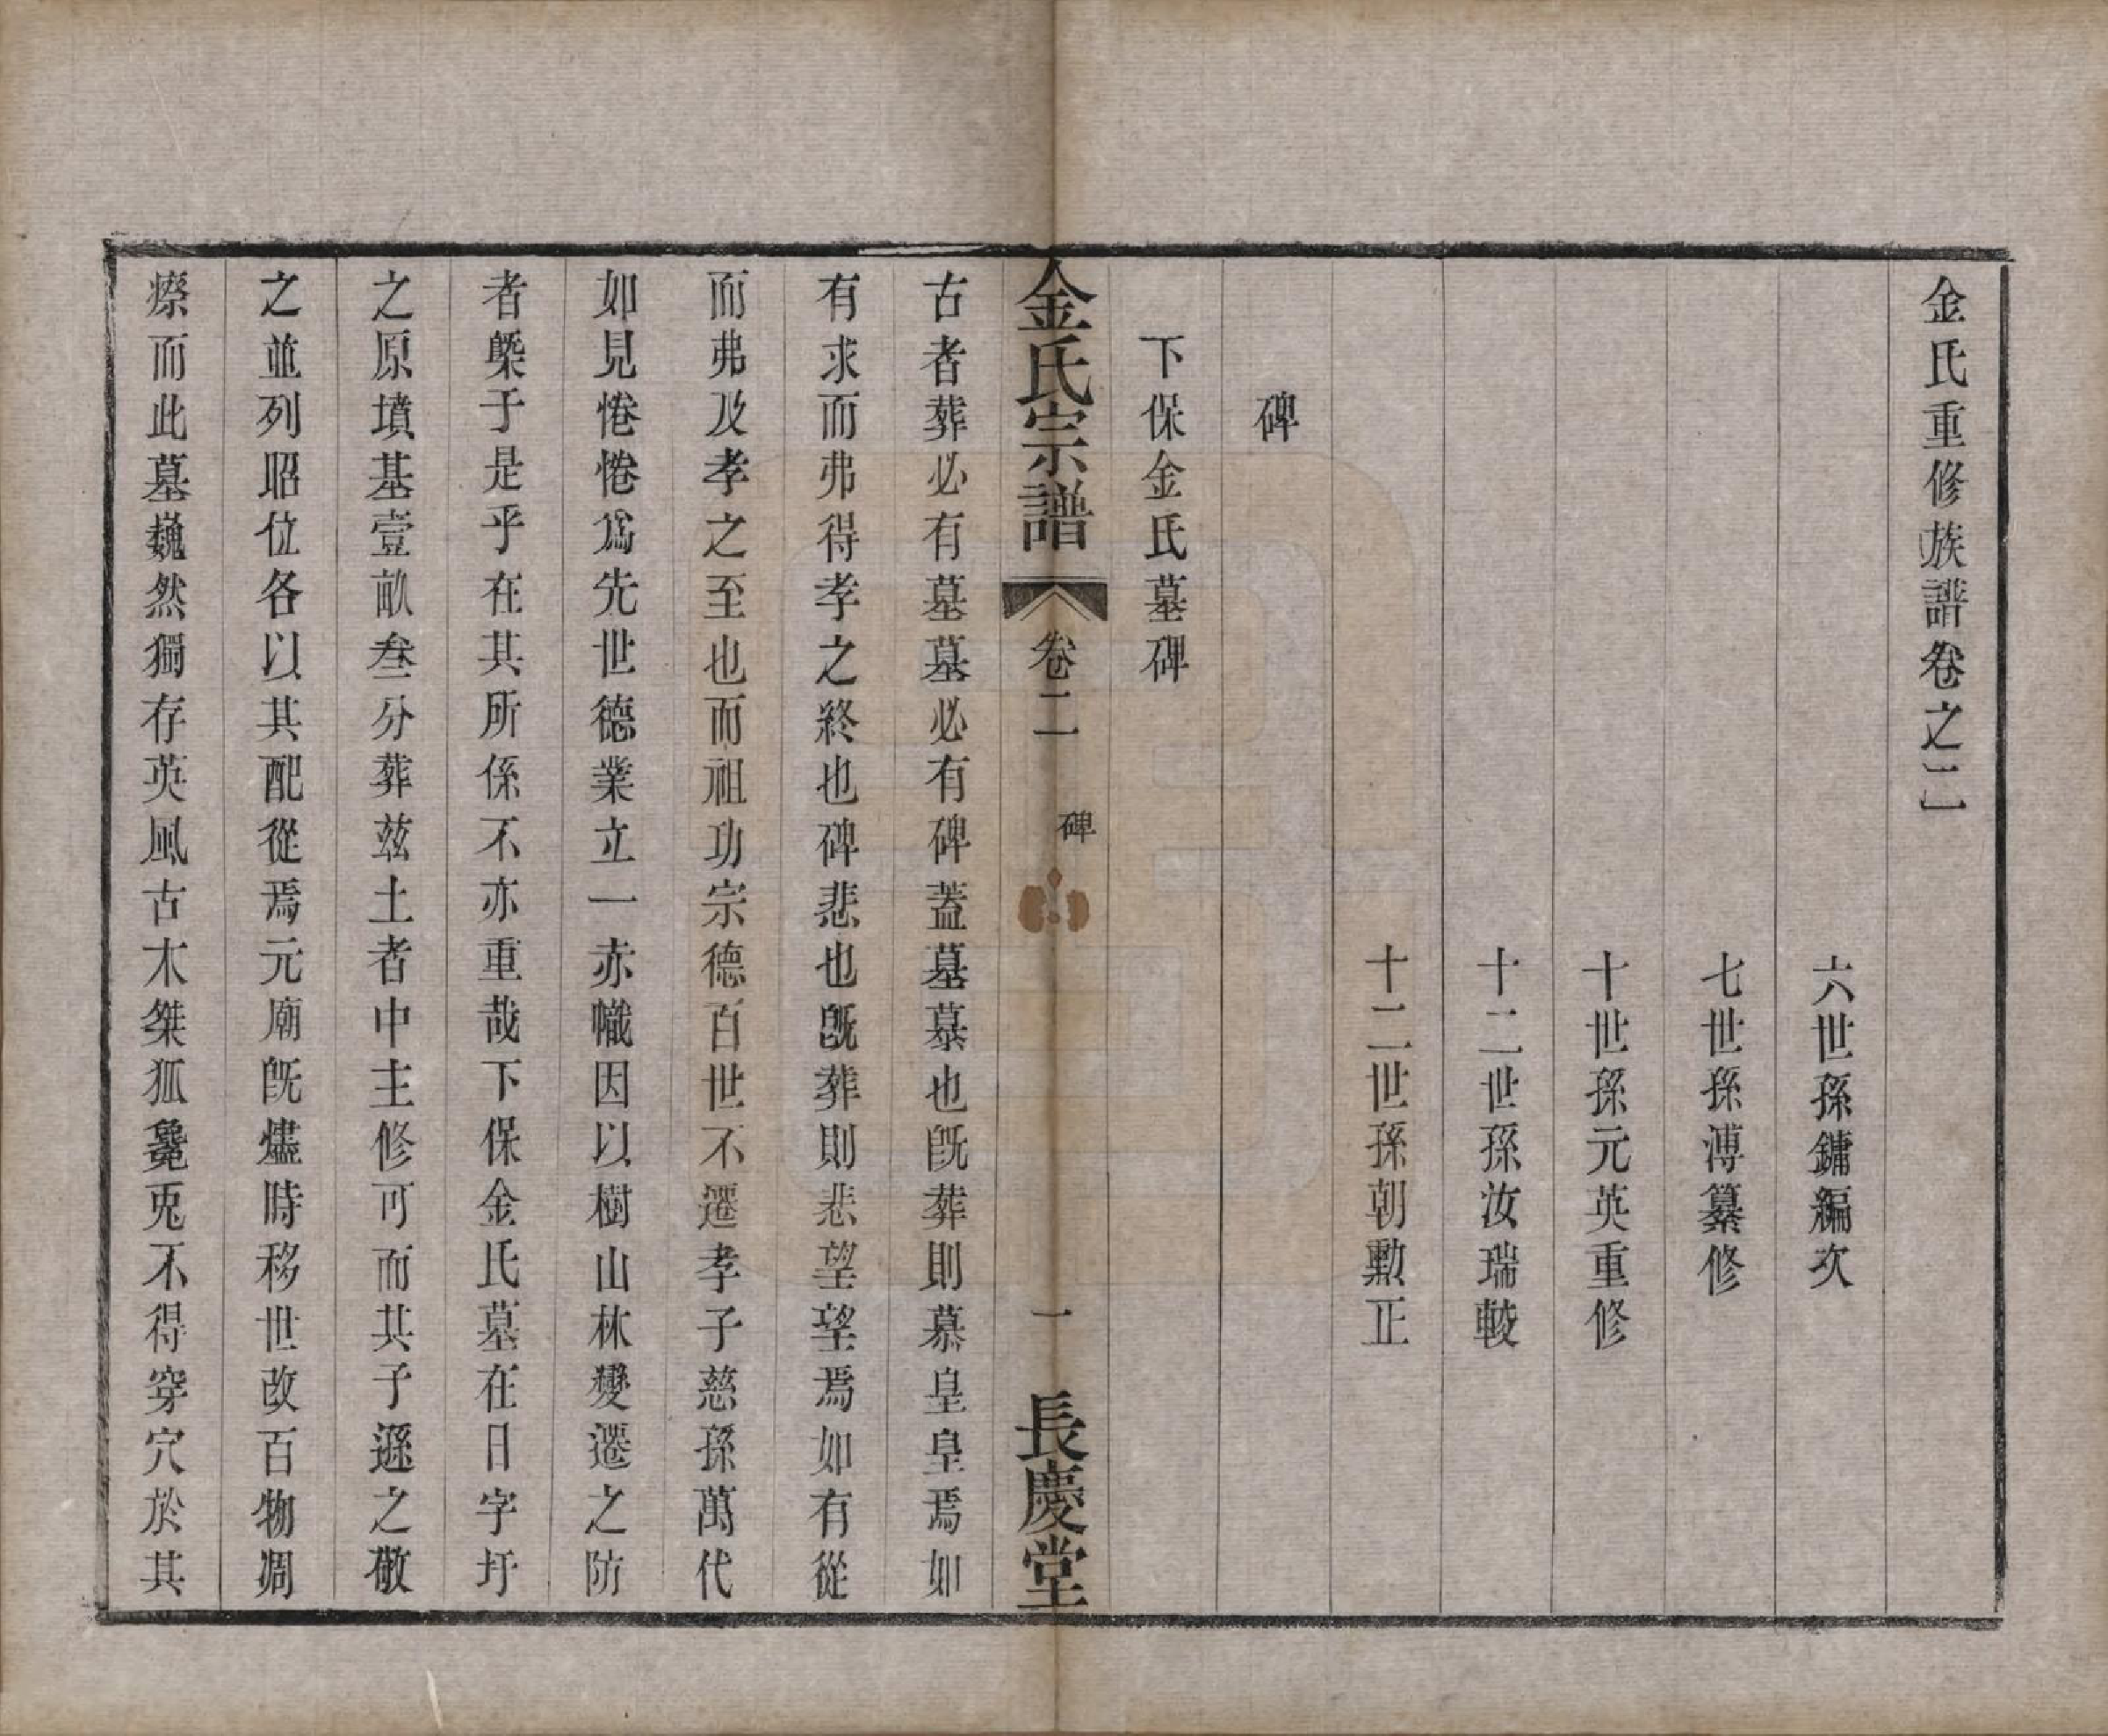 金氏重修族譜卷之二
六世孫鏞編次
七世孫溥纂修
十世孫元英重修
十二世孫汝瑞較
十二世孫朝勲正
碑
下保金氏墓碑
金氏宗譜 卷二 碑 一 長慶堂
古者葬必有墓墓必有碑蓋墓慕也旣葬則慕皇皇焉如
有求而弗得孝之終也碑悲也旣葬則悲望望焉如有從
而弗及孝之至也而祖功宗德百世不遷孝子慈孫萬代
如見惓惓爲先世德業立一赤幟因以樹山林變遷之防
者槩于是乎在其所係不亦重哉下保金氏墓在日字圩
之原墳基壹畝叁分葬茲土者中主修可而其子遜之敬
之並列昭位各以其配從焉元廟旣燼時移世改百物凋
瘵而此墓巍然獨存英風古木桀狐毚兎不得穿穴於其